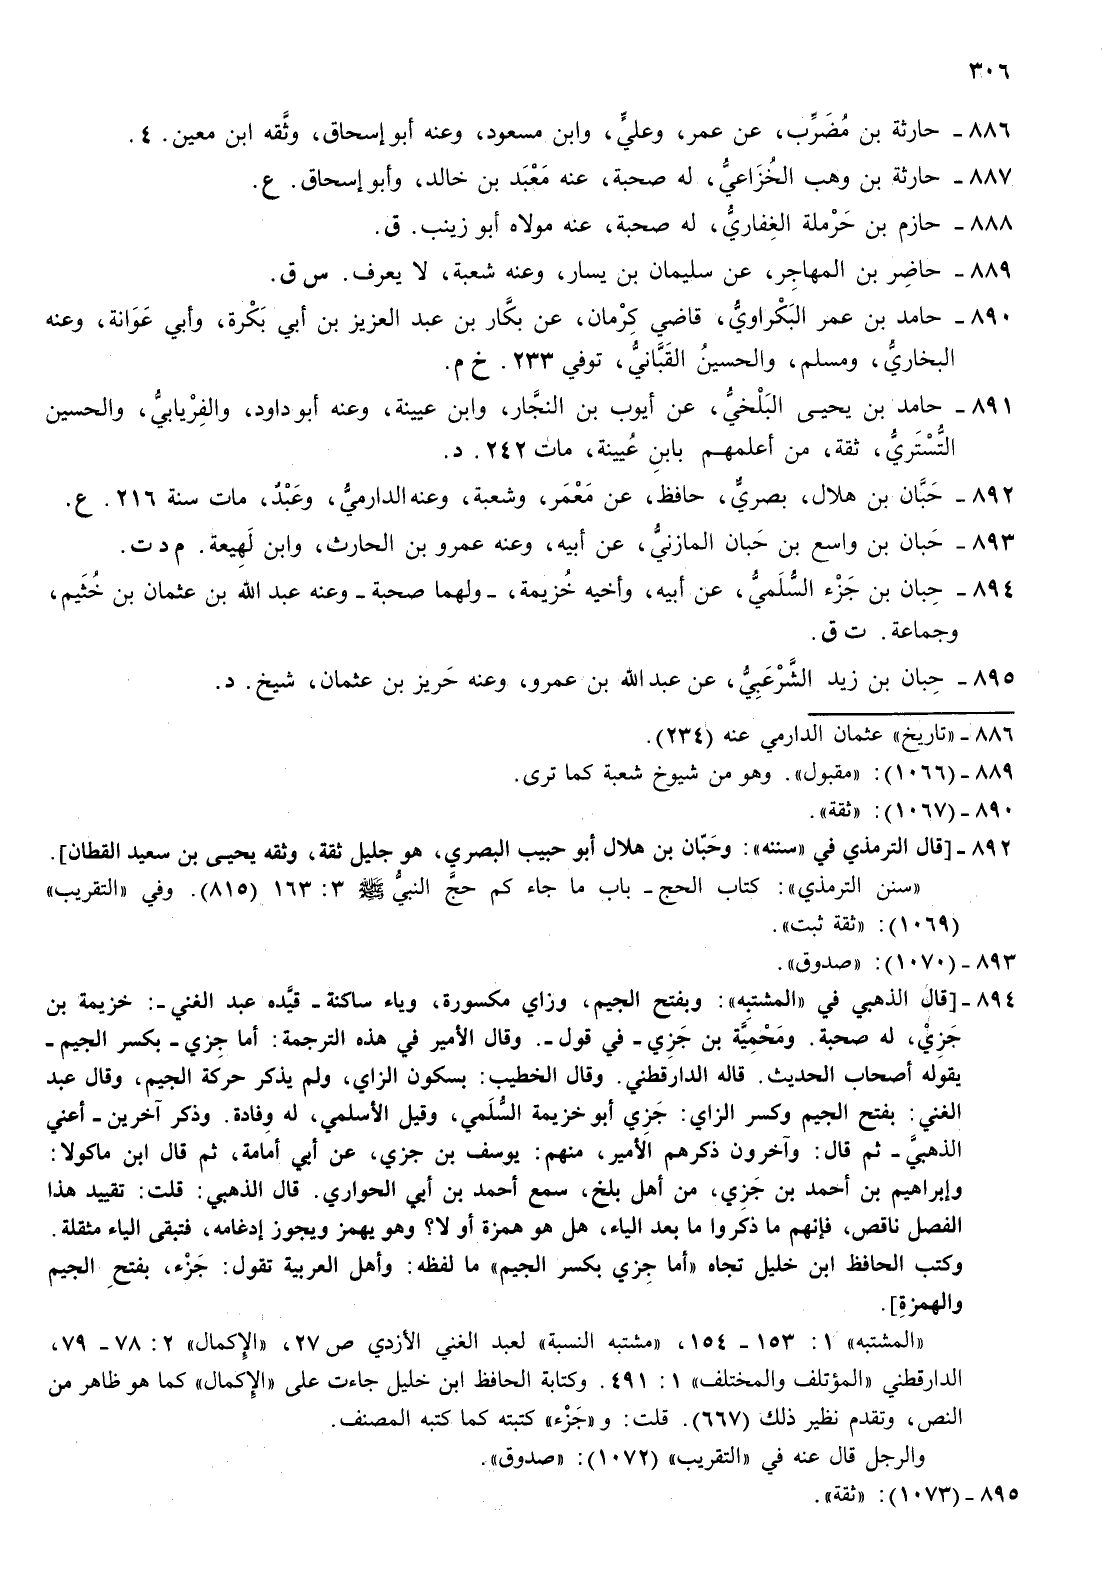 ٣٠٦
٨٨٦ ـ حارثة بن مُضَرِّب، عن عمر، وعليٍّ، وابن مسعود، وعنه أبو إسحاق، وثَّقه ابن معين. ٤.
٨٨٧ ـ حارثة بن وهب الخُزَاعيُّ، له صحبة، عنه مَعْبَد بن خالد، وأبو إسحاق. ع.
٨٨٨ ـ حازم بن حَرْملة الغِفاريُّ، له صحبة، عنه مولاه أبو زينب. ق.
٨٨٩ ـ حاضِر بن المهاجِر، عن سليمان بن يسار، وعنه شعبة، لا يعرف. س ق.
٨٩٠ ـ حامد بن عمر البَكْراويُّ، قاضي كِرْمان، عن بكَّار بن عبد العزيز بن أبي بَكْرة، وأبي عَوَانة، وعنه
البخاريُّ، ومسلم، والحسينُ القَبَّانيُّ، توفي ٢٣٣. خ م.
٨٩١ ـ حامد بن يحيى البَلْخيُّ، عن أيوب بن النجَّار، وابن عيينة، وعنه أبو داود، والفِرْيابيُّ، والحسين
التُّسْتَريُّ، ثقة، من أعلمهم بابنِ عُيينة، مات ٢٤٢. د.
٨٩٢ ـ حَبَّان بن هلال، بصريٌّ، حافظ، عن مَعْمَر، وشعبة، وعنه الدارميُّ، وعَبْدٌ، مات سنة ٢١٦. ع.
٨٩٣ ـ حَبان بن واسع بن حَبان المازنيُّ، عن أبيه، وعنه عمرو بن الحارث، وابن لَهِيعة. م د ت.
٨٩٤ ـ حِبان بن جَزْء السُّلَميُّ، عن أبيه، وأخيه خُزيمة، ـ ولهما صحبة ـ وعنه عبد الله بن عثمان بن خُثَيم،
وجماعة. ت ق.
٨٩٥ ـ حِبان بن زيد الشَّرْعَبِيُّ، عن عبد الله بن عمرو، وعنه حَريز بن عثمان، شيخ. د.
٨٨٦ ـ «تاريخ» عثمان الدارمي عنه (٢٣٤).
٨٨٩ ـ (١٠٦٦): «مقبول». وهو من شيوخ شعبة كما ترى.
٨٩٠ ـ (١٠٦٧): «ثقة».
٨٩٢ ـ [قال الترمذي في «سننه»: وحَبّان بن هلال أبو حبيب البصري، هو جليل ثقة، وثقه يحيى بن سعيد القطان].
«سنن الترمذي»: كتاب الحج ـ باب ما جاء كم حجَّ النبيُّ ﷺ ٣: ١٦٣ (٨١٥). وفي «التقريب»
(١٠٦٩): «ثقة ثبت».
٨٩٣ ـ (١٠٧٠): «صدوق».
٨٩٤ ـ [قال الذهبي في «المشتبه»: وبفتح الجيم، وزاي مكسورة، وياء ساكنة ـ قيَّده عبد الغني ـ: خزيمة بن
جَزِيْ، له صحبة. ومَحْمِيَّة بن جَزِي ـ في قول ـ. وقال الأمير في هذه الترجمة: أما جِزي ـ بكسر الجيم ـ
يقوله أصحاب الحديث. قاله الدارقطني. وقال الخطيب: بسكون الزاي، ولم يذكر حركة الجيم، وقال عبد
الغني: بفتح الجيم وكسر الزاي: جَزِي أبو خزيمة السُّلَمي، وقيل الأسلمي، له وِفادة. وذكر آخرين ـ أعني
الذهبيَّ ـ ثم قال: وآخرون ذكرهم الأمير، منهم: يوسف بن جزي، عن أبي أمامة، ثم قال ابن ماكولا:
وإبراهيم بن أحمد بن جَزِي، من أهل بلخ، سمع أحمد بن أبي الحواري. قال الذهبي: قلت: تقييد هذا
الفصل ناقص، فإنهم ما ذكروا ما بعد الياء، هل هو همزة أو لا؟ وهو يهمز ويجوز إدغامه، فتبقى الياء مثقلة.
وكتب الحافظ ابن خليل تجاه «أما جِزي بكسر الجيم» ما لفظه: وأهل العربية تقول: جَزْء، بفتح الجيم
والهمزة].
«المشتبه» ١: ١٥٣ ـ ١٥٤، «مشتبه النسبة» لعبد الغني الأزدي ص ٢٧، «الإكمال» ٢: ٧٨ ـ ٧٩،
الدارقطني «المؤتلف والمختلف» ١: ٤٩١. وكتابة الحافظ ابن خليل جاءت على «الإكمال» كما هو ظاهر من
النص، وتقدم نظير ذلك (٦٦٧). قلت: و «جَزْء» كتبته كما كتبه المصنف.
والرجل قال عنه في «التقريب» (١٠٧٢): «صدوق».
٨٩٥ ـ (١٠٧٣): «ثقة».